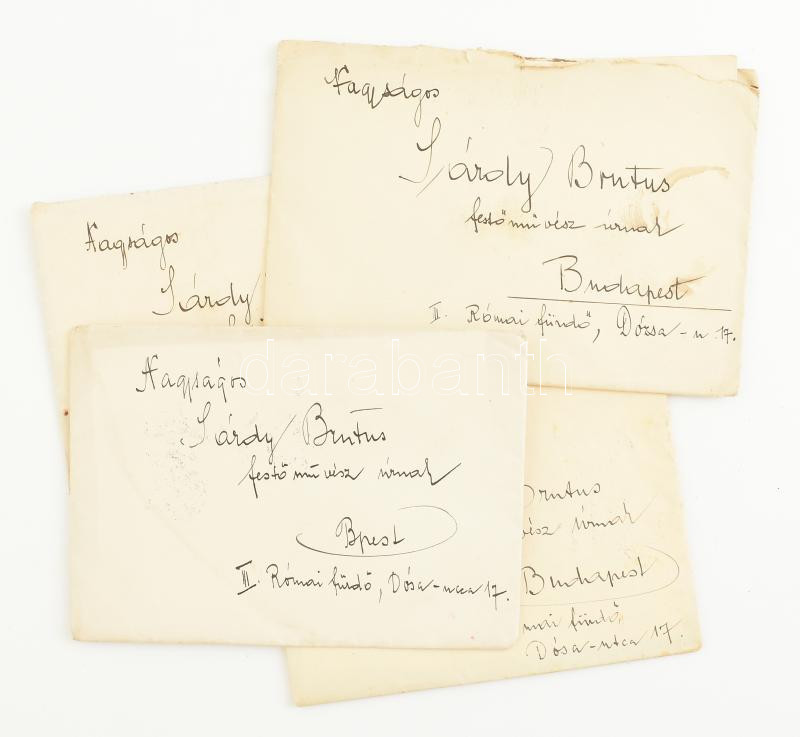 Nagyságos
Sárdy Brutus
festőművész úrnak
Budapest
II. Római fürdő, Dózsa-u. 17.
Nagyságos
Sárdy
Nagyságos
Sárdy Brutus
festőművész úrnak
Bpest
III. Római fürdő, Dósa-utca 17.
Brutus
vész úrnak
Budapest
mai fürdő
Dósa-utca 17.
darabanth